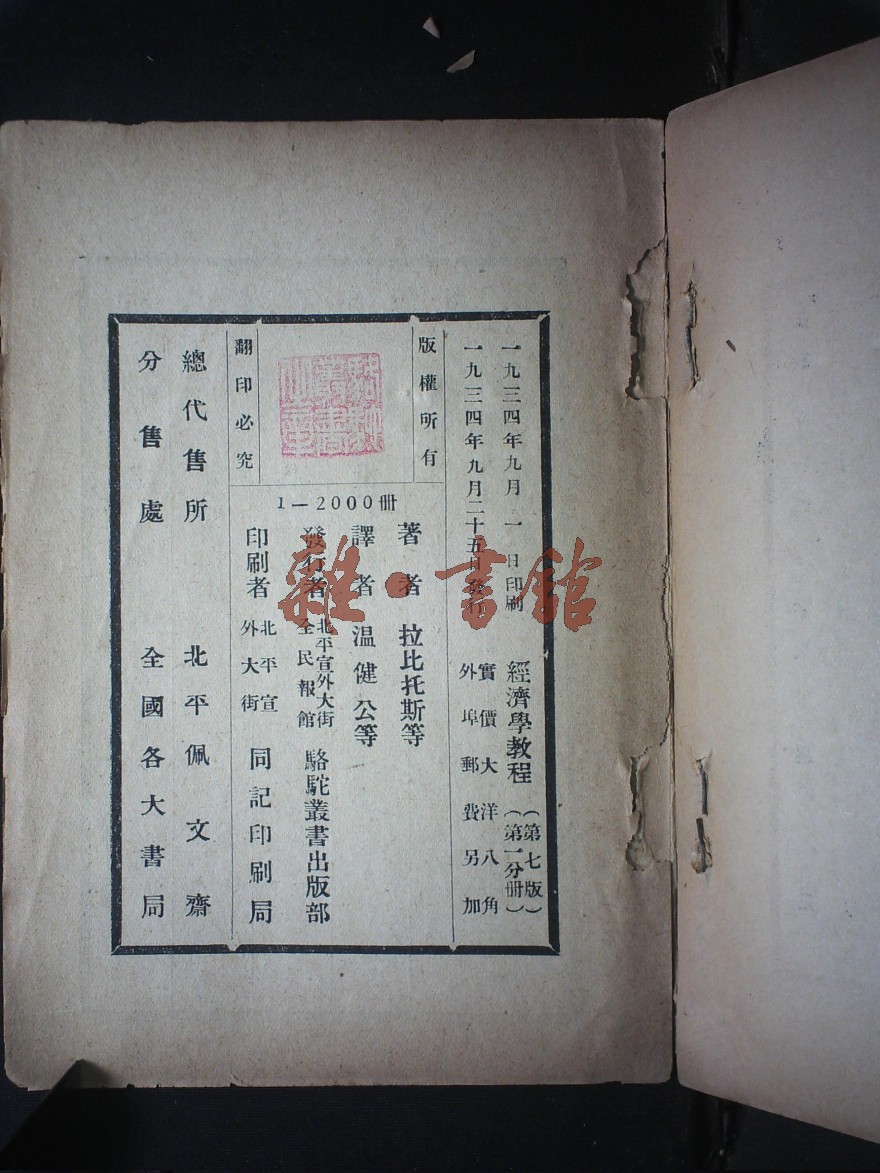 一九三四年九月一日印刷
一九三四年九月二十五日發行
經濟學教程
(第七版)
(第一分册)
實價大洋八角
外埠郵費另加
版權所有
翻印必究
1—2000冊
著者 拉比托斯等
譯者 温健公等
發行者 北平宣外大街全民報館 駱駝叢書出版部
印刷者 北平宣外大街 同記印刷局
總代售所 北平佩文齋
分售處 全國各大書局
雜·書館